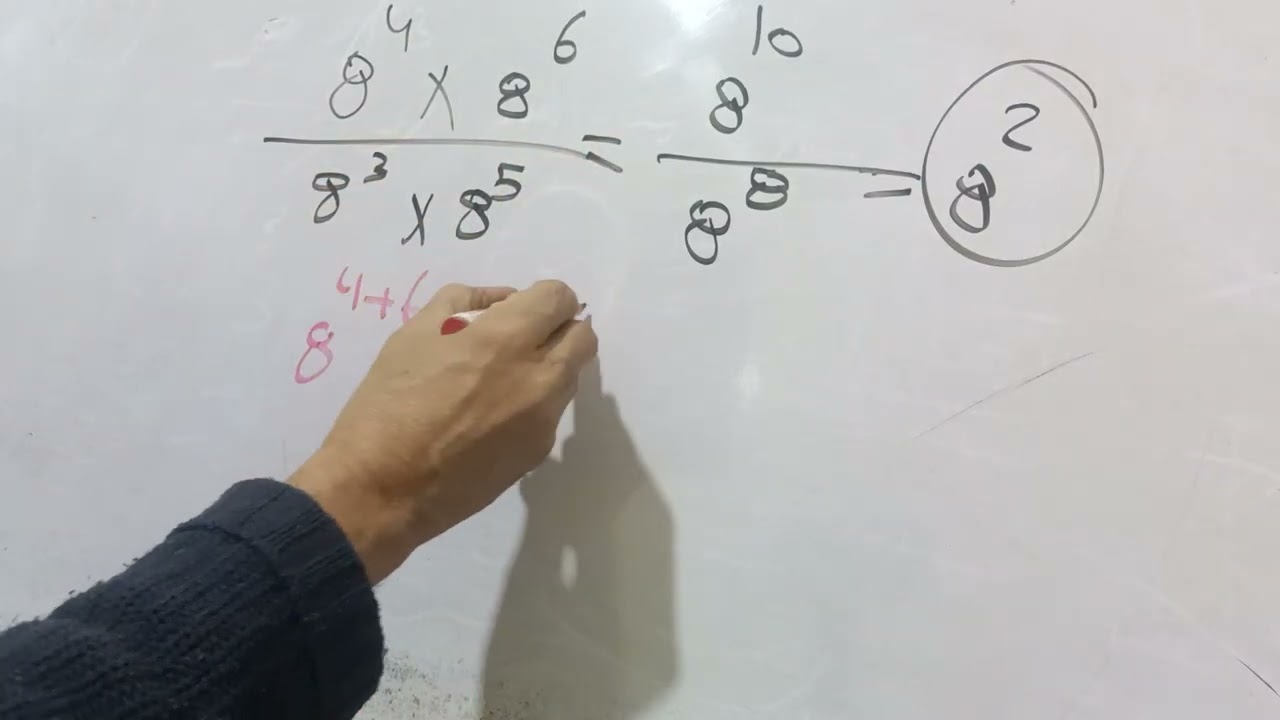 8⁴ × 8⁶ / 8³ × 8⁵ = 8¹⁰ / 8⁸ = 8²
8⁴⁺⁶